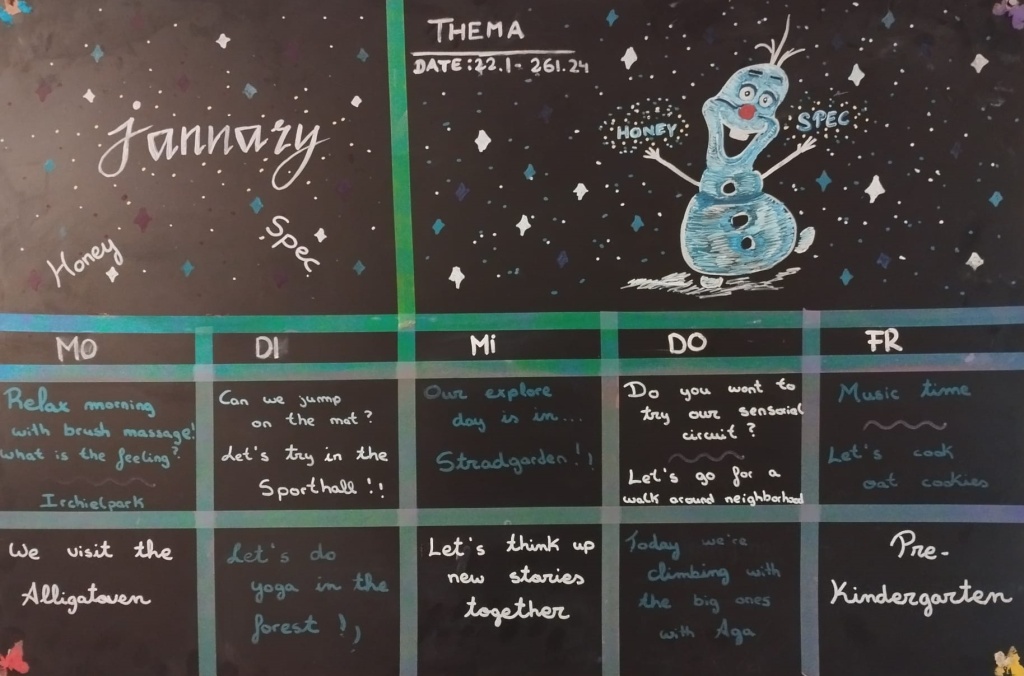 Jannary
Honey
Spec
THEMA
DATE:22.1- 261.24
HONEY
SPEC
MO
DI
Mi
DO
FR
Relax morning
with brush massage!
what is the feeling?
Irchielpark
Can we jump
on the mat?
Let's try in the
Sporthall!!
Our explore
day is in...
Stradgarden!!
Do you want to
try our sensorial
circuit?
Let's go for a
walk around neighborhood
Music time
Let's cook
oat cookies
We visit the
Alligatoven
Let's do
yoga in the
forest!!
Let's think up
new stories
together
Today we're
climbing with
the big ones
with Aga
Pre-
Kindergarten